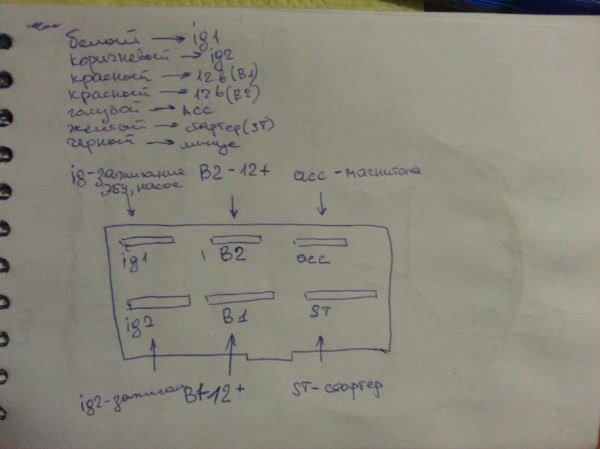 белый → ig1
коричневый → ig2
красный → 12 в (B1)
красный → 12 в (B2)
голубой → Acc
желтый → стартер (ST)
черный → минус
ig-зажигание B2-12+ acc-магнитола
ЭБУ, насос
ig1 B2 acc
ig2 B1 ST
ig2-зажиган B1-12+ ST-стартер